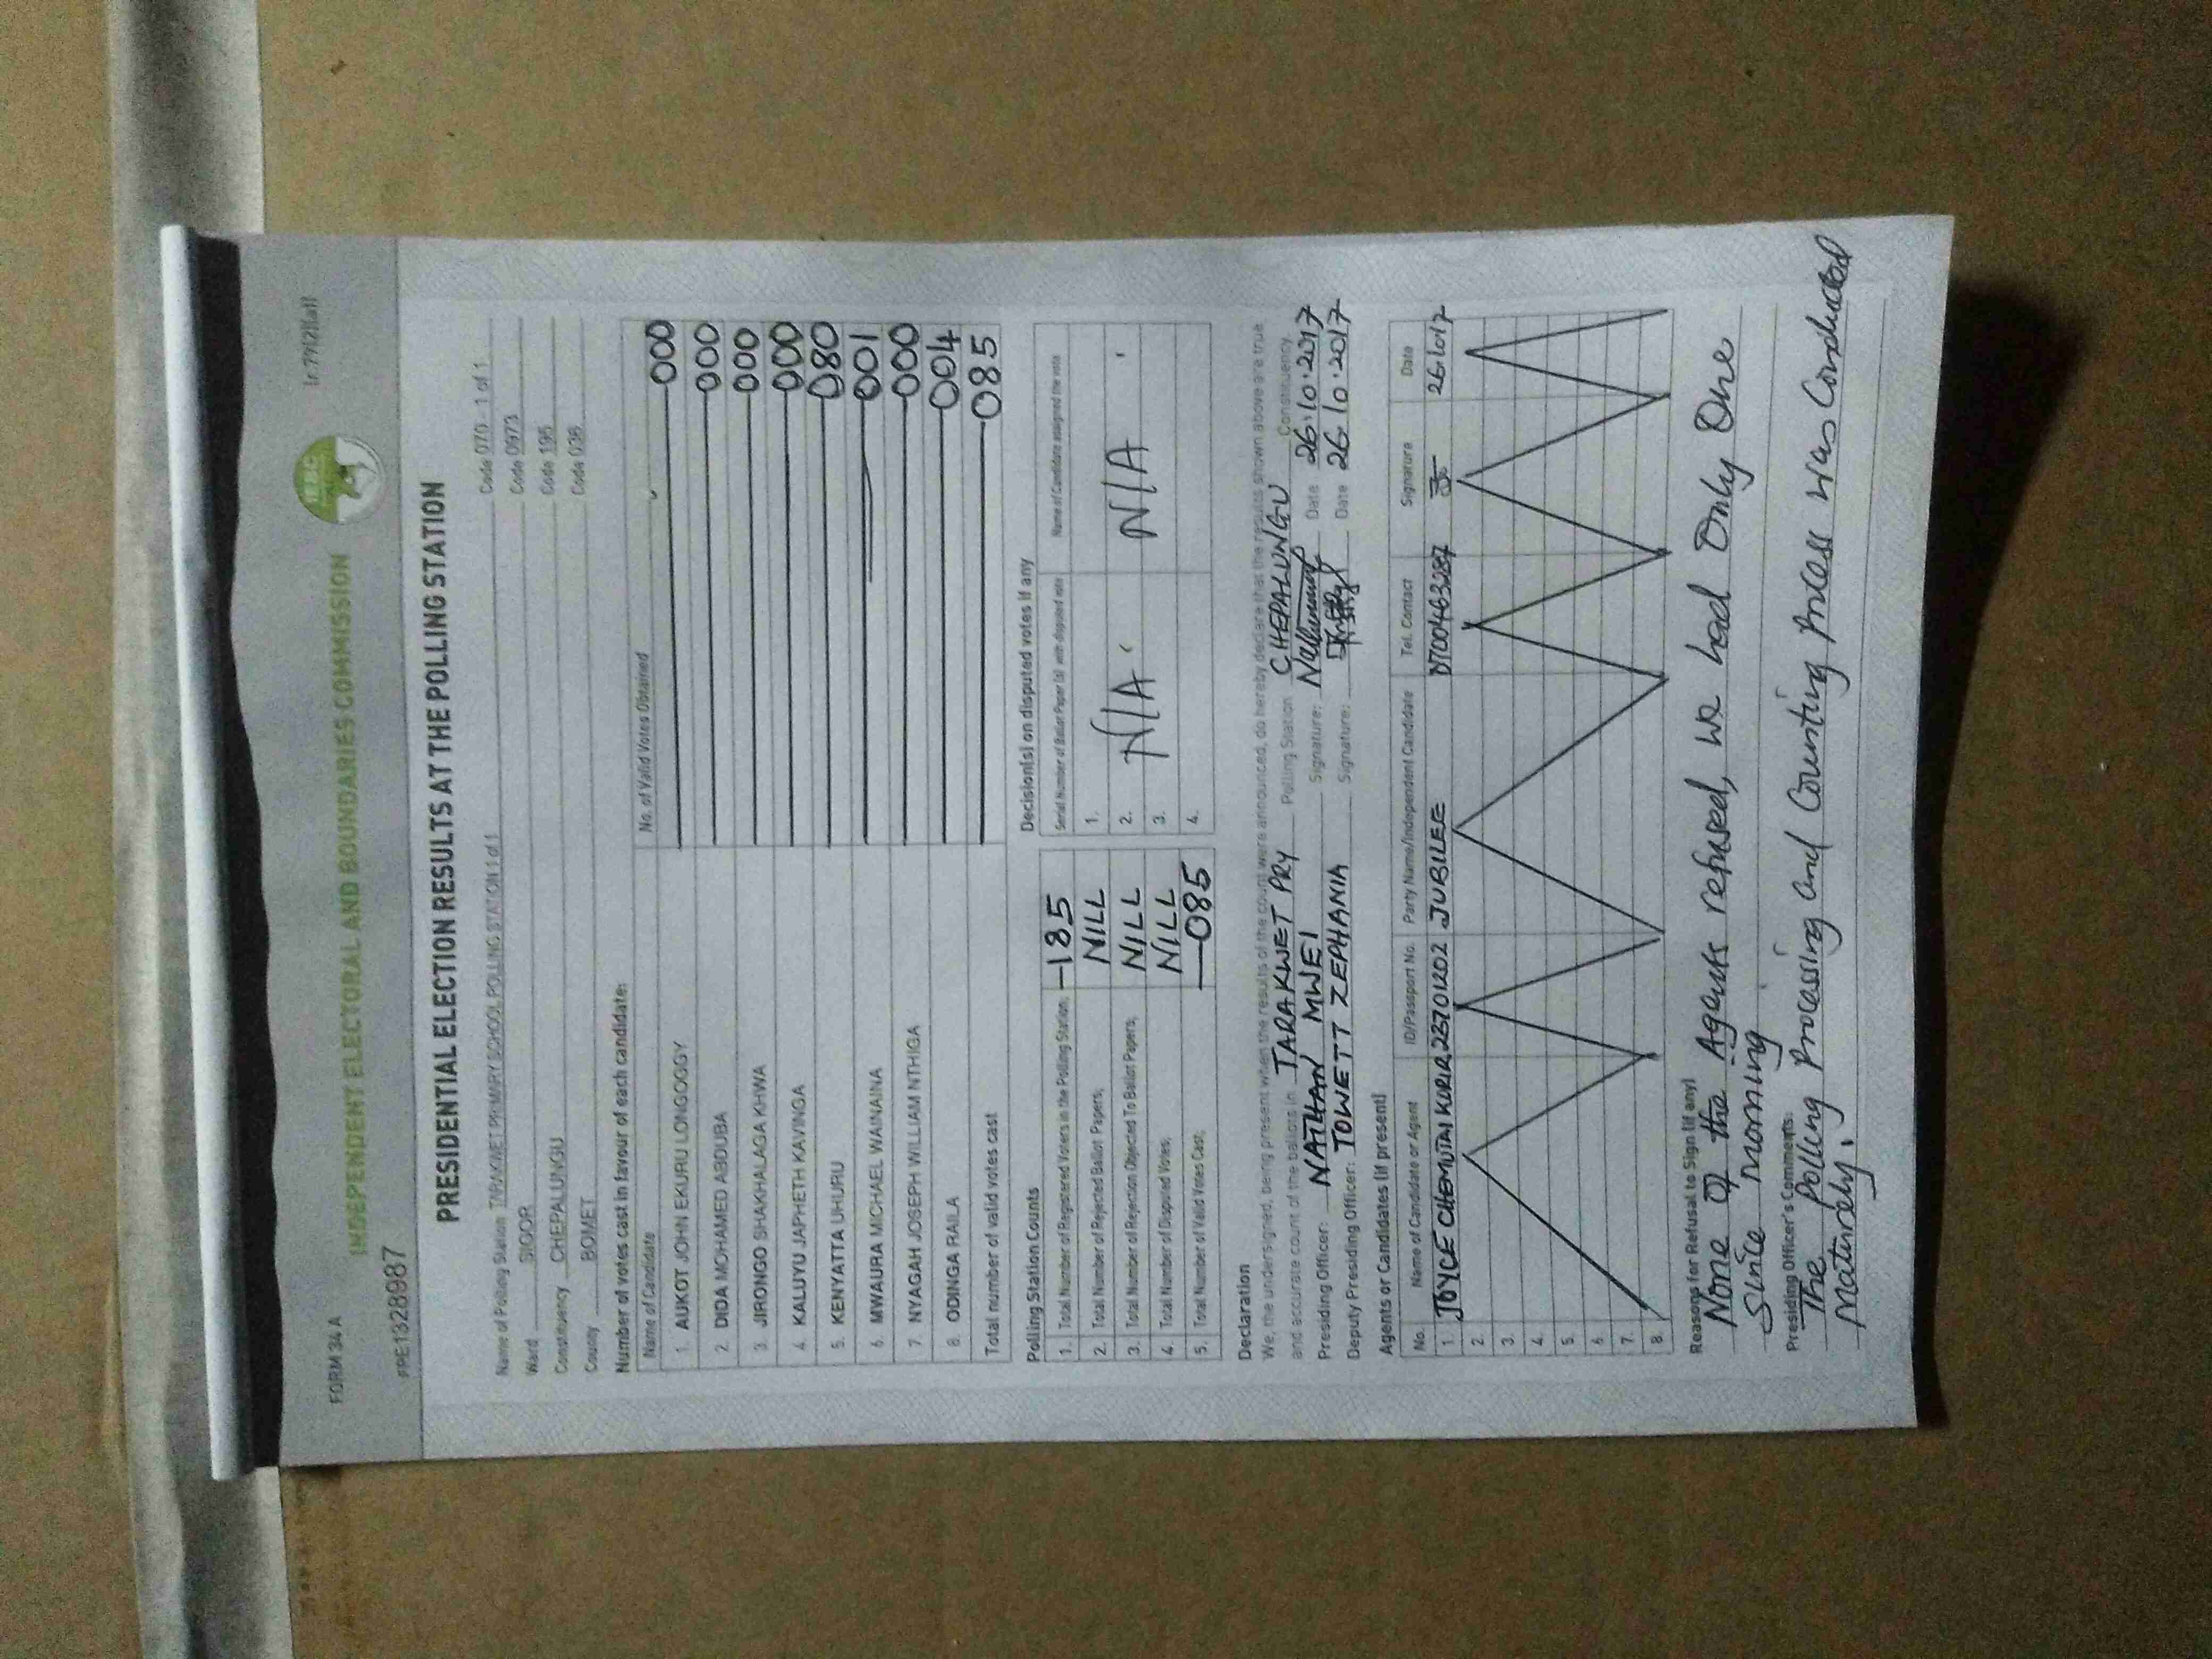 FORM 34 A
INDEPENDENT ELECTORAL AND BOUNDARIES COMMISSION
(r.79(2)(a))
PRE1328987
PRESIDENTIAL ELECTION RESULTS AT THE POLLING STATION
Name of Polling Station TARAKWET PRIMARY SCHOOL POLLING STATION 1 of 1 Code 070 1 of 1
Ward SIGOR Code 0973
Constituency CHEPALUNGU Code 195
County BOMET Code 036
Number of votes cast in favour of each candidate:
Name of Candidate No. of Valid Votes Obtained
1. AUKOT JOHN EKURU LONGOGGY 000
2. DIDA MOHAMED ABDUBA 000
3. JIRONGO SHAKHALAGA KHWA 000
4. KALUYU JAPHETH KAVINGA 000
5. KENYATTA UHURU 080
6. MWAURA MICHAEL WAINAINA 001
7. NYAGAH JOSEPH WILLIAM NTHIGA 000
8. ODINGA RAILA 004
Total number of valid votes cast 085
Polling Station Counts
1. Total Number of Registered Voters in the Polling Station; 185
2. Total Number of Rejected Ballot Papers; NILL
3. Total Number of Rejection Objected To Ballot Papers; NILL
4. Total Number of Disputed Votes; NILL
5. Total Number of Valid Votes Cast; 085
Decision(s) on disputed votes if any
Serial Number of Ballot Paper (s) with disputed vote Name of Candidate assigned the vote
1.
2. N/A N/A
3.
4.
Declaration
We, the undersigned, being present when the results of the count were announced, do hereby declare that the results shown above are true
and accurate count of the ballots in TARAKWET PRY Polling Station CHEPALUNGU Constituency.
Presiding Officer: NATHAN MWEI Signature: Date 26.10.2017
Deputy Presiding Officer: TOWETT ZEPHANIA Signature: Date 26.10.2017
Agents or Candidates (if present)
No. Name of Candidate or Agent ID/Passport No. Party Name/Independent Candidate Tel. Contact Signature Date
1. JOYCE CHEMUTAI 23701202 JUBILEE 0700463287
2.
3.
4.
5.
6.
7.
8.
Reasons for Refusal to Sign (if any)
None of the Agents refused, we had Only One
Since morning
Presiding Officer's Comments:
The Polling Processing and Counting Process was Conducted
Maturely.